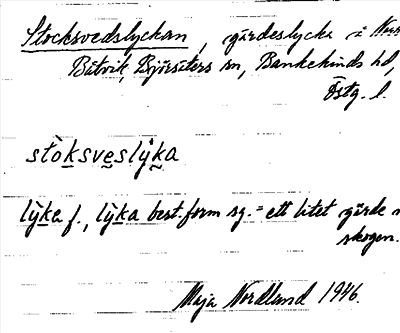 Stocksvedslyckan, gärdeslycka i
Båtvik, Björsäters sn, Bankekinds hd,
Östg. l.
stòksveslýka
lỳka f., lỳka best. form sg. = ett litet gärde
skogen.
Maja Nordland 1946.